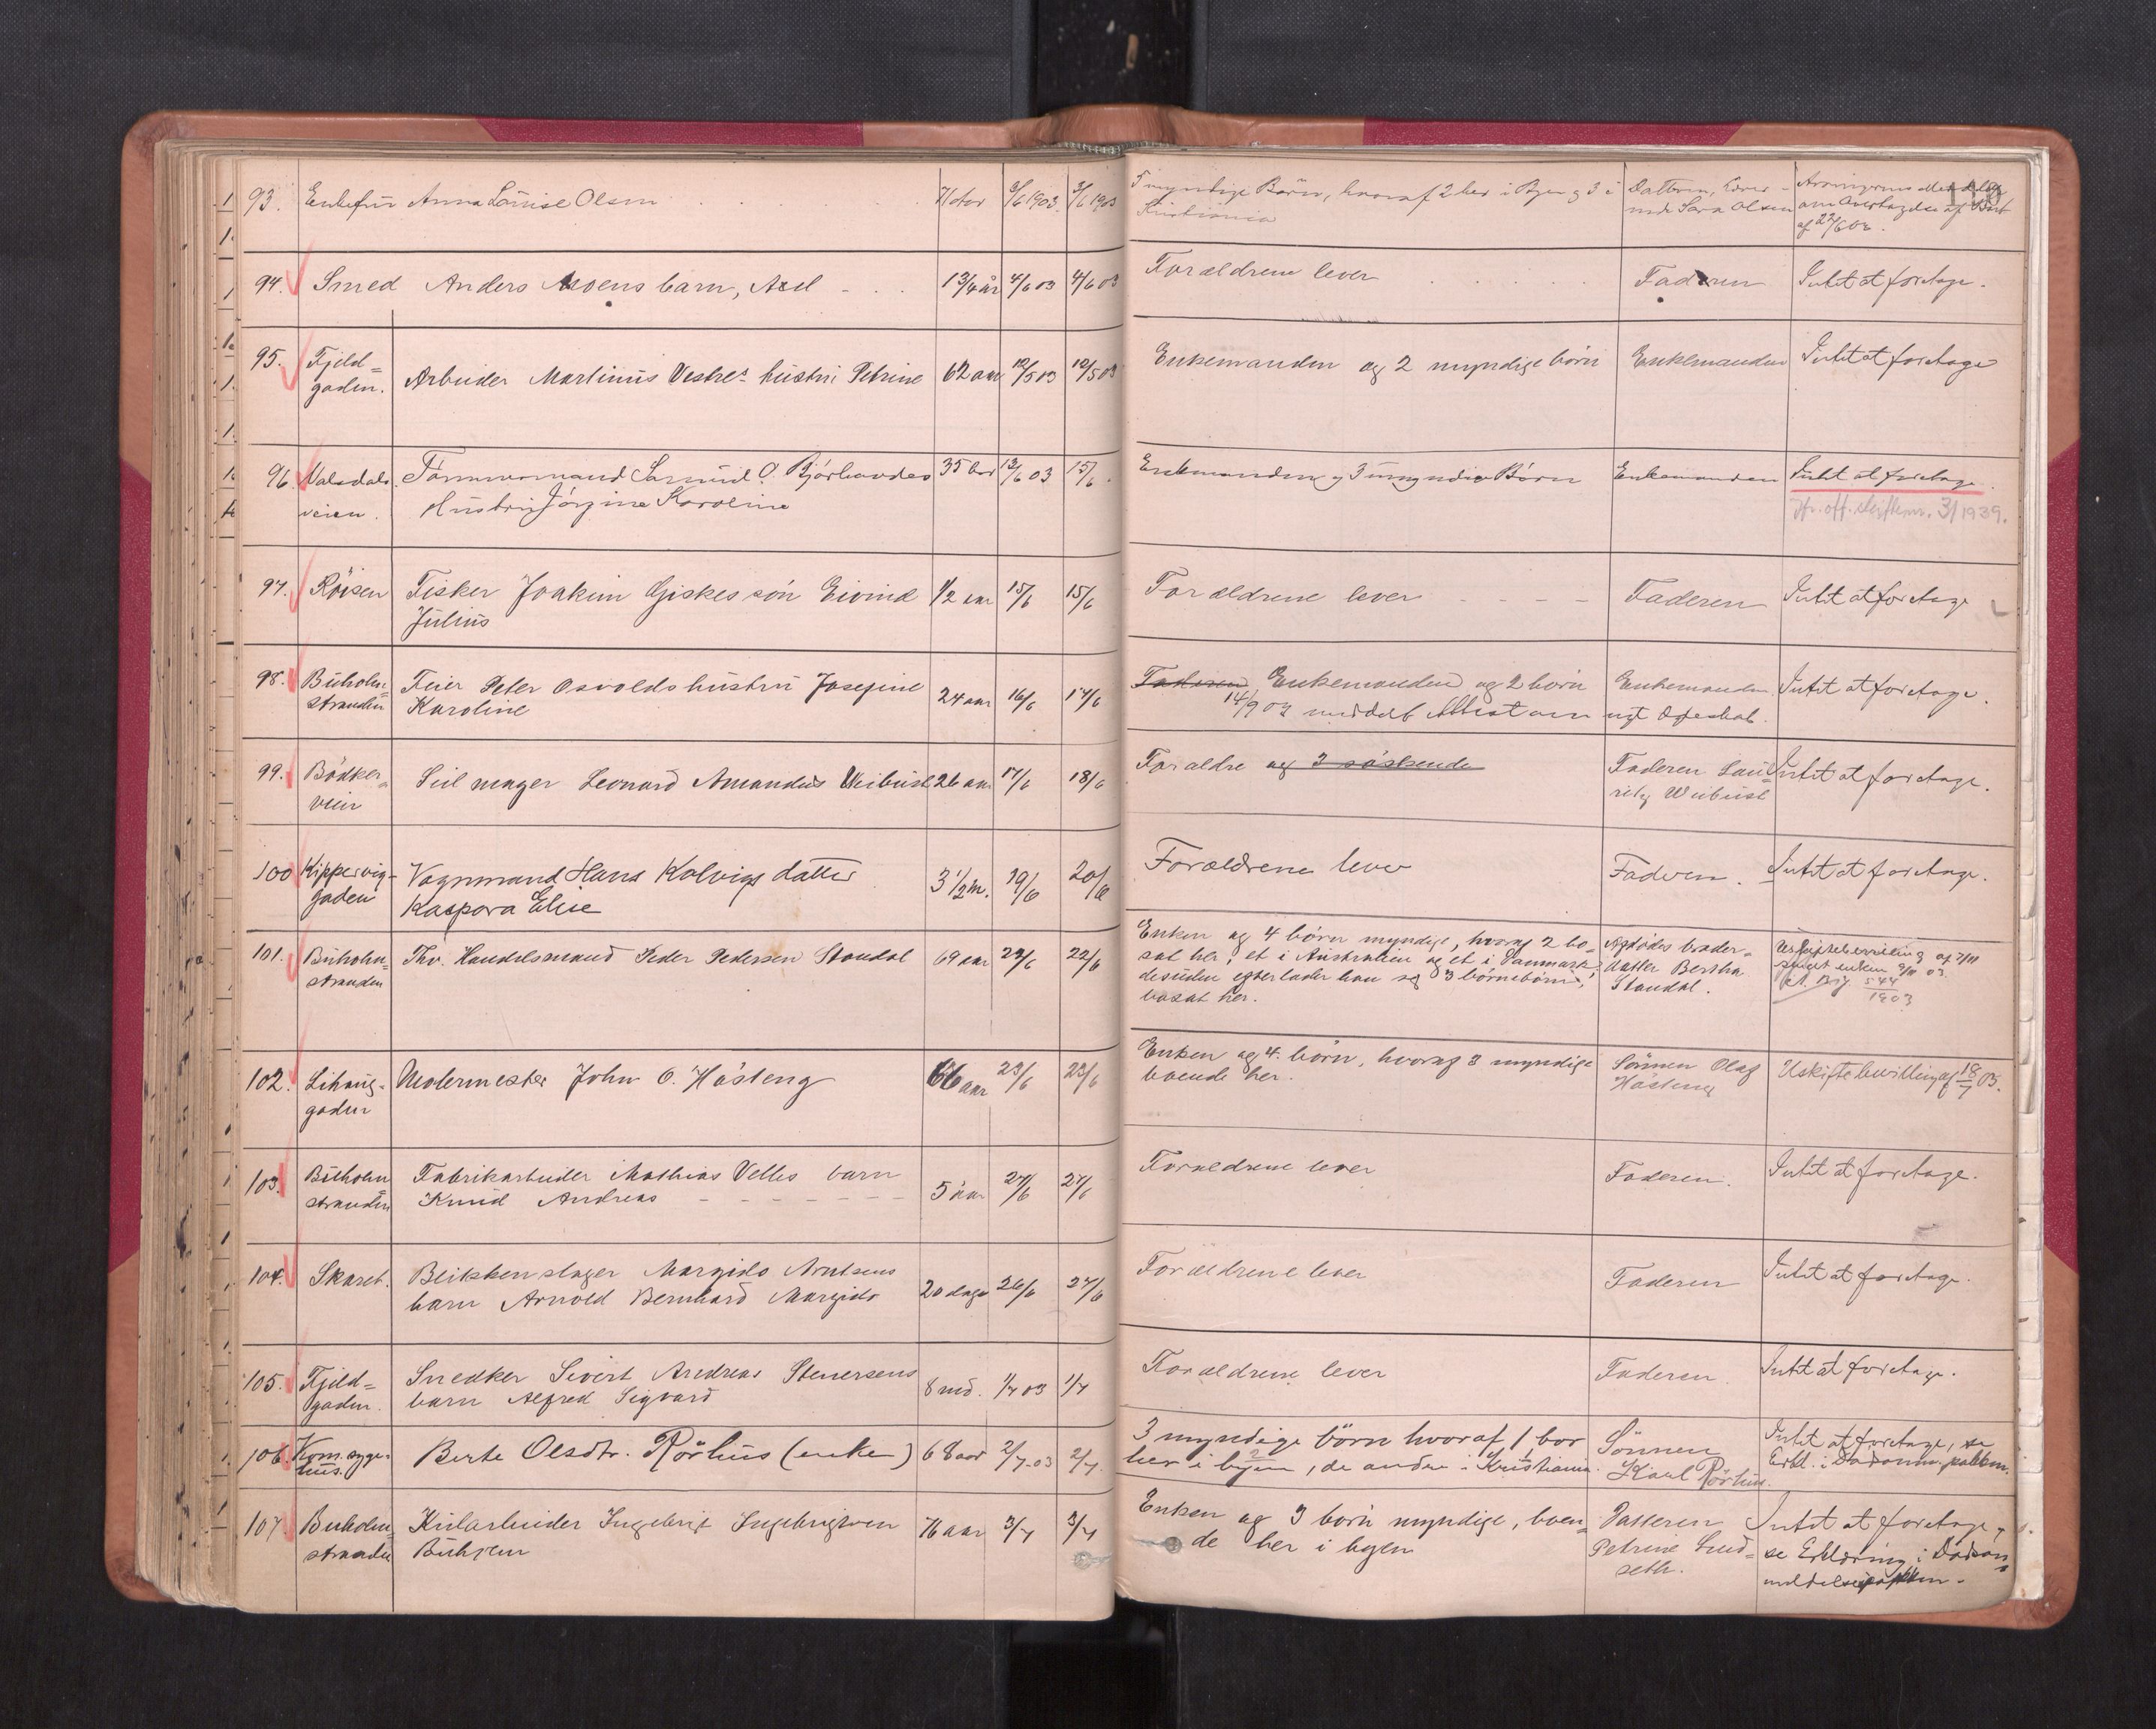 118
93. Enkefru Anna Louise Olsen 71 aar 3/6 1903. 3/6 1903 5 myndige Børn, hvoraf 2 her i Byen og 3 i
Kristiania
Datteren,
Sara Olsen
om Overtagelse af Boet
af 22/6 03.
94. Smed Anders Moens barn, Axel 1 3/4 år 4/6 03 4/6 03 Forældrene lever Faderen Intet at foretage.
95. Fjeld=
gaden. Arbeider Martinus Vestres hustru Petrine 62 aar 12/5 03 12/5 03 Enkemanden og 2 myndige børn Enkemanden Intet at foretage
96. Valsdals
veien. Tømmermand Samuel O.
Hustru Jørgine Karoline 35 aar 13/6 03 15/6. Enkemanden og 3 umyndige Børn Enkemanden Intet at foretage.
3/1939.
97. Röisen Fisker Joakim Giskes sön Eivind
Julius 1/2 aar 15/6 15/6 Forældrene lever Faderen Intet at foretage
98. Buholm=
stranden Feier Peter Osvolds hustru Josefine
Karoline 24 aar 16/6 17/6 Faderen Enkemanden og 2 børn Enkemanden. Intet at foretage.
14/9 03 meddelt Attest om nyt Ægteskab.
99. Bödker=
veien Seilmager Leonard Amandus Weibust 26 aar 17/6 18/6 Forældre og 3 söskende Faderen Lau=
ritz Weibust Intet at foretage.
100 Kippervig-
gaden Vognmand Hans Kolvigs datter
Kaspara Elise 3 1/2 m. 19/6 20/6 Forældrene lever Faderen. Intet at foretage.
101. Buholm=
stranden Fhv. Handelsmand Peder Pedersen Standal 69 aar 22/6 22/6 Enken og 4 börn myndige, hvoraf 2 bo-
sat her, et i Australien og et i Danmark,
desuden efterlader han sig 3 börnebörn,
bosat her.
Afdödes broder-
datter Bertha
Standal.
Uskiftebevilling af 7/11
enken 9/11 03.
544
1903
102. Lihaug-
gaden Malermester John O. Håsteng 66 aar 23/6 23/6 Enken og 4 börn, hvoraf 3 myndige
boende her. Sönnen Olaf
Håsteng Uskiftebevilling af 18/7 03.
103. Buholm
stranden Fabrikarbeider Mathias Velles barn
Knud Andreas 5 aar 27/6 27/6 Forældrene lever Faderen. Intet at foretage.
104. Skaret. Blikkenslager Margido Arntsens
barn Arnold Bernhard Margido 20 dage 26/6 27/6 Forældrene lever Faderen Intet at foretage.
105. Fjeld=
gaden. Snedker Sivert Andreas Stenersens
barn Alfred Sigvard 8 md. 1/7 03 1/7 Forældrene lever Faderen. Intet at foretage.
106. Kom. syge-
hus. Berte Olsdtr. Rörhus (enke) 68 aar 2/7-03 2/7. 3 myndige börn hvoraf 1 bor
her i byen, de andre i Kristiania. Sönnen
Karl Rörhus. Intet at foretage, se
Erkl. i Dödsanm. pakken.
107 Buholm=
stranden Kularbeider Ingebrigt Ingebrigtsen
Buhjem 76 aar 3/7 3/7 Enken og 3 börn myndige, boen=
de her i byen Datteren
Petrine Lud=
seth. Intet at foretage,
se Erklæring i Dödsan=
meldelsespakken.